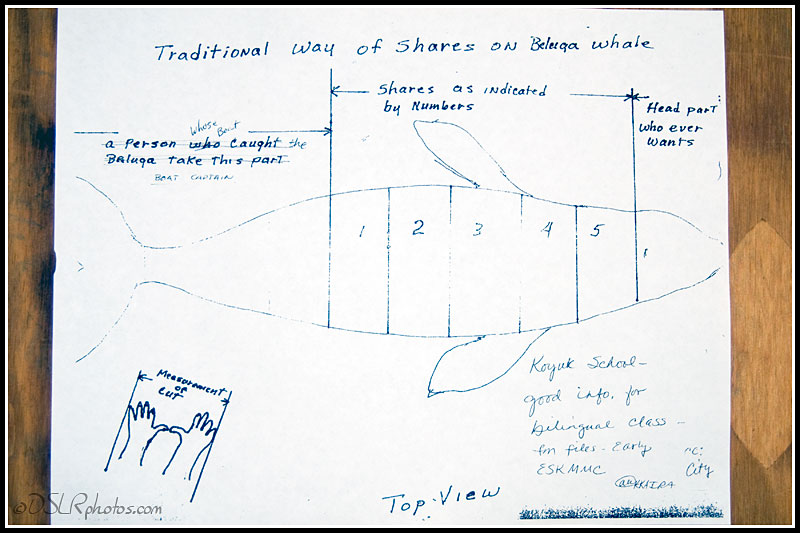 Traditional Way of Shares on Beluga Whale
Shares as indicated
by Numbers
Head part
who ever
wants
whose Boat
a Person who Caught the
Beluga take this part
BOAT CAPTAIN
1 2 3 4 5
Measurement
of
cut
Koyuk School -
good info. for
bilingual class -
for files - Early
ESKMMC
City
Top-View
©DSLRphotos.com